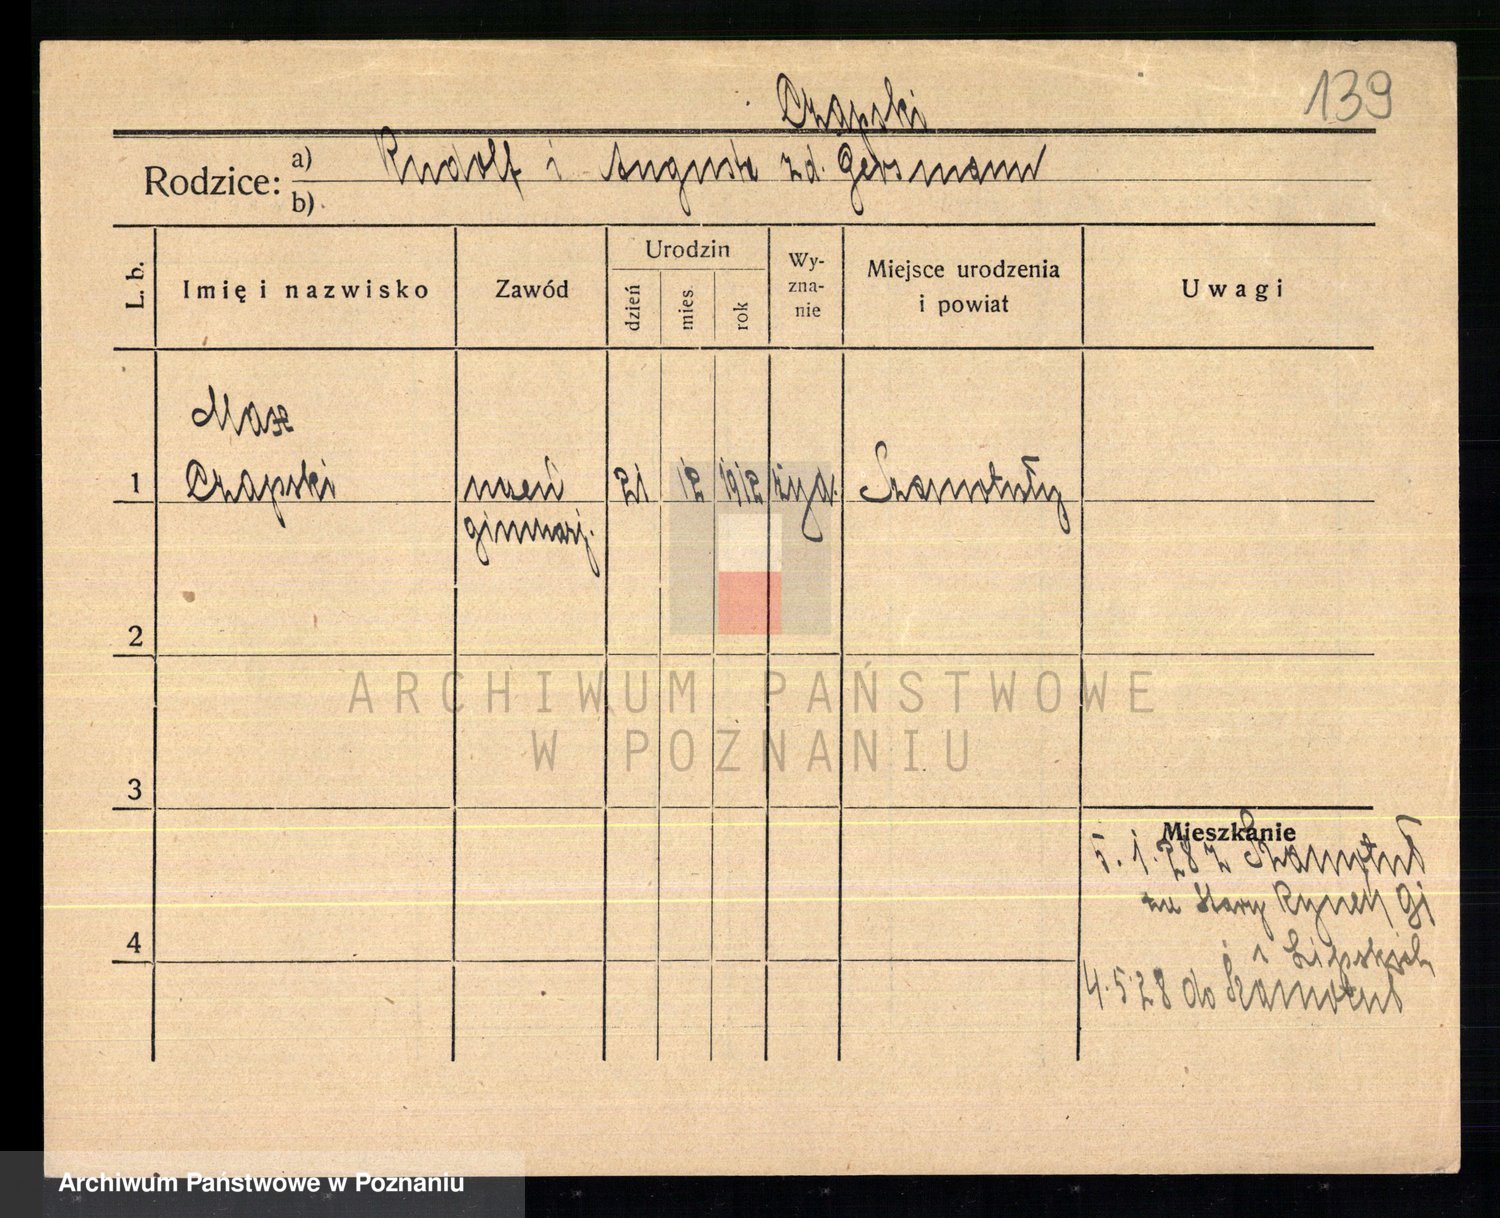 139
Czapski
Rodzice: a) Rudolf i Augusta zd. Gersmann
b)
L. b. Imię i nazwisko Zawód Urodzin dzień mies. rok Wy-zna-nie Miejsce urodzenia i powiat Uwagi
Max
1 Czapski uczeń 21 12 1912 żyd. Szamotuły
gimnazj.
2
ARCHIWUM PAŃSTWOWE
W POZNANIU
3
Mieszkanie
5. 1. 28 z Szamotuł
Stary Rynek
4
4.5.28 do Szamotuł
Archiwum Państwowe w Poznaniu